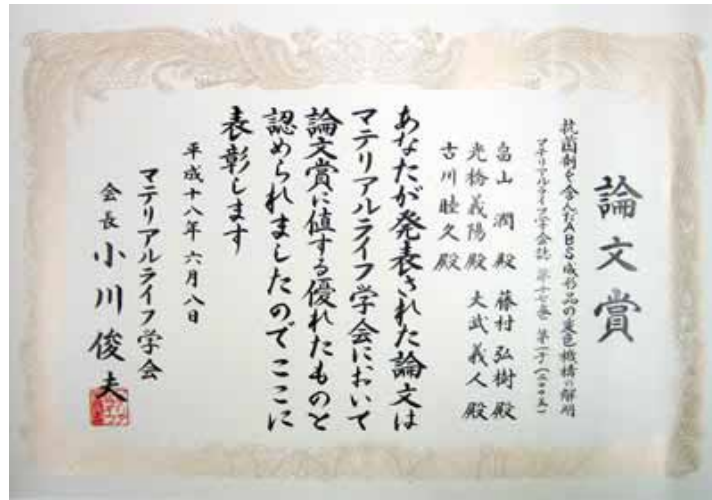 論文賞
抗菌剤を含んだABS成形品の変色機構の解明
マテリアルライフ学会誌 第十七巻 第一号(二〇〇五)
畠山 潤 殿 藤村 弘樹 殿
光橋義陽殿 大武義人 殿
古川睦久殿
あなたが発表された論文は
マテリアルライフ学会において
論文賞に値する優れたものと
認められましたのでここに
表彰します
平成十八年六月八日
マテリアルライフ学会
会長 小川俊夫